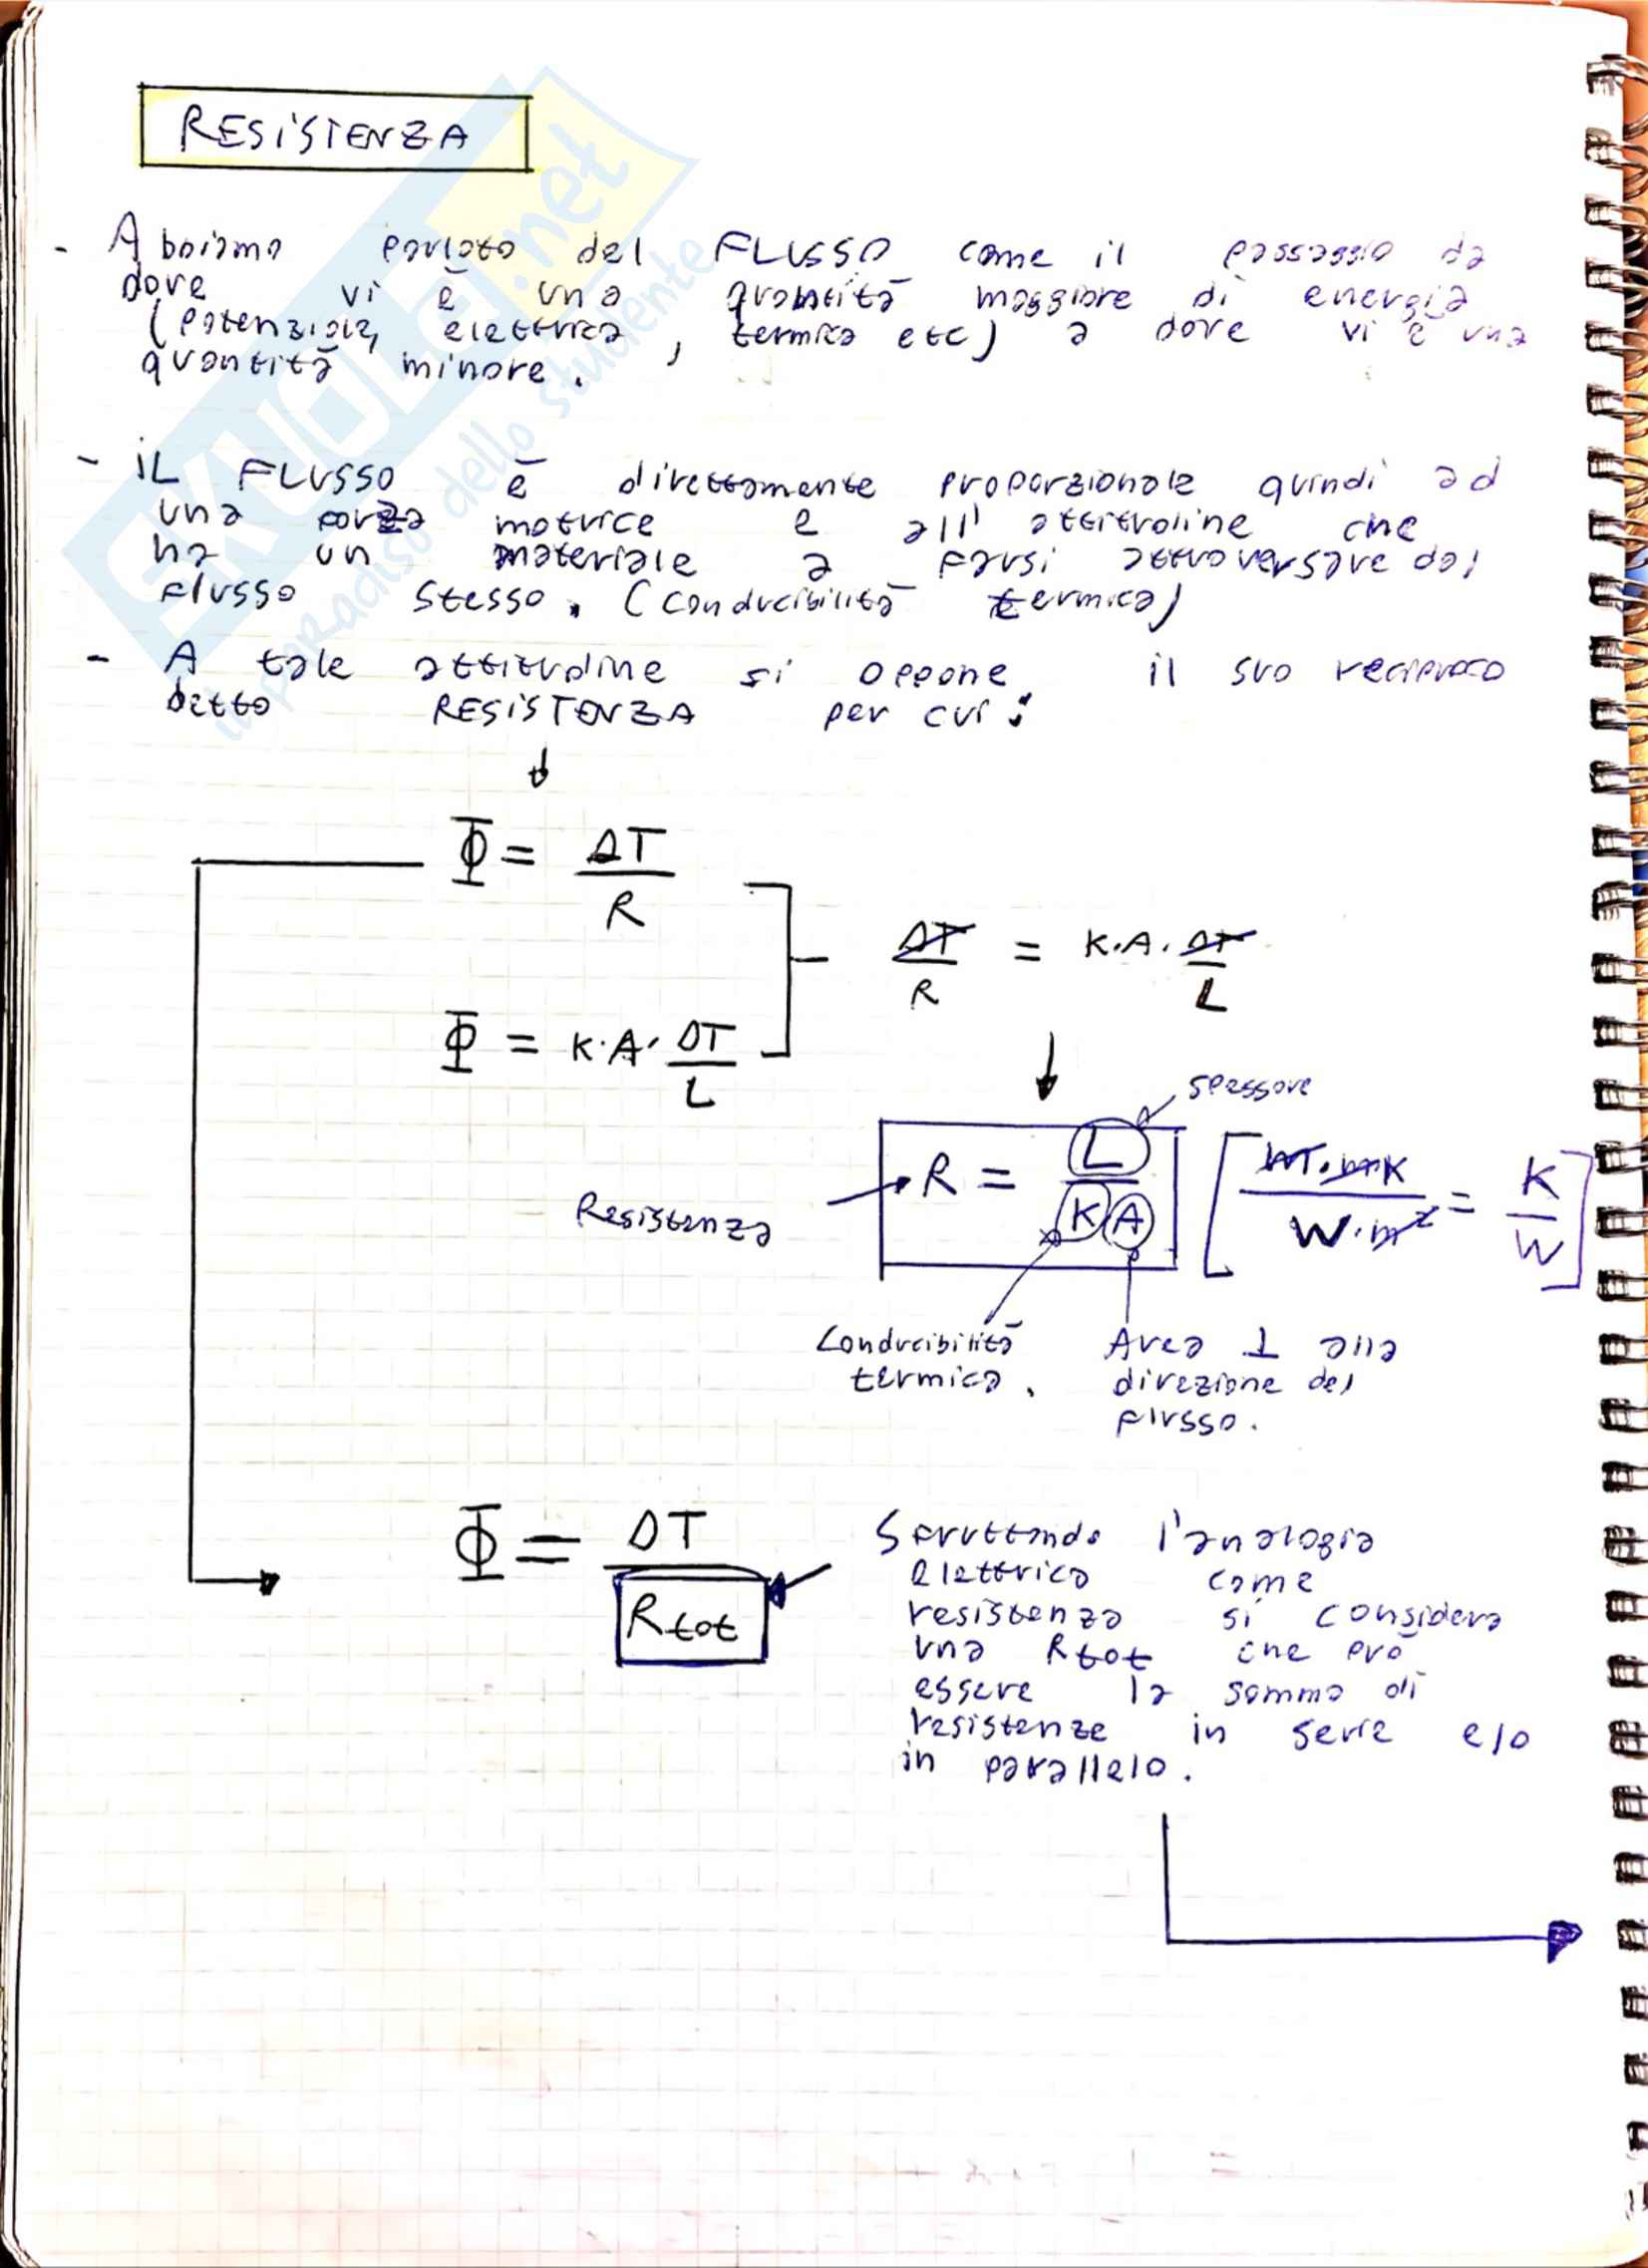 RESISTENZA
- Abbiamo parlato del FLUSSO come il passaggio da
dove vi è una quantità maggiore di energia
(potenziale, elettrica, termica etc) a dove vi è una
quantità minore.
- IL FLUSSO è direttamente proporzionale quindi ad
una forza motrice e all'attitudine che
ha un materiale a farsi attraversare dal
flusso stesso. (conducibilità termica)
- A tale attitudine si oppone il suo reciproco
detto RESISTENZA per cui:
Φ = ΔT / R
ΔT / R = K·A· ΔT / L
Φ = K·A· ΔT / L
spessore
Resistenza R = L / K A [ m·mK / W·m² = K / W ]
Conducibilità termica.
Area ⊥ alla
direzione del
flusso.
Φ = ΔT / Rtot
Sfruttando l'analogia
elettrica come
resistenza si considera
una Rtot che può
essere la somma di
resistenze in serie e/o
in parallelo.
SKUOLA.net
il paradiso dello studente